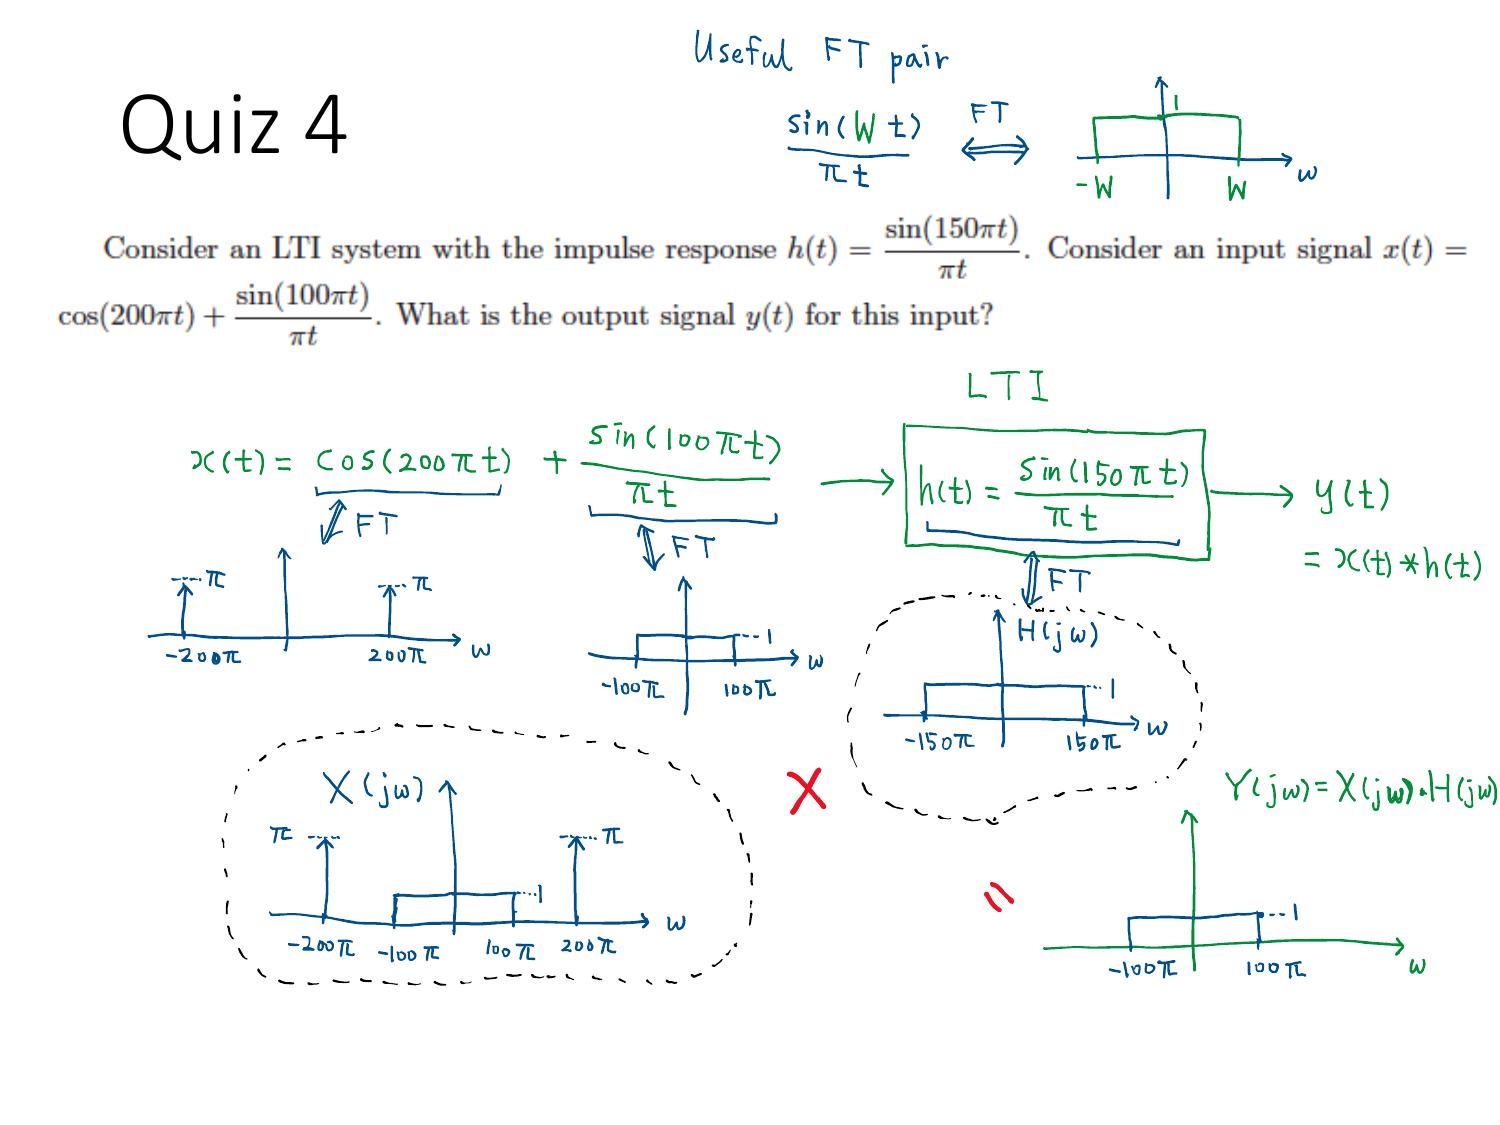 Useful FT pair
Quiz 4
sin(Wt)/πt FT 1 -W W ω
Consider an LTI system with the impulse response h(t) = sin(150πt)/πt. Consider an input signal x(t) =
cos(200πt) + sin(100πt)/πt. What is the output signal y(t) for this input?
LTI
x(t) = cos(200πt) + sin(100πt)/πt → h(t) = sin(150πt)/πt → y(t)
= x(t) * h(t)
FT FT FT
π π -200π 200π ω
1 -100π 100π ω
H(jω) 1 -150π 150π ω
X(jω) X Y(jω) = X(jω).H(jω)
π π 1 -200π -100π 100π 200π ω
= 1 -100π 100π ω